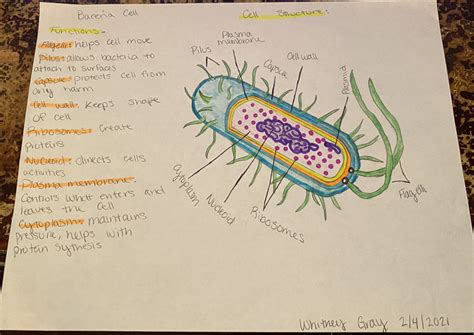 Bacteria Cell
Cell Structure:
Functions-
Flagelli: helps cell move
Pilus: allows bacteria to
attach to surfaces
Capsule: protects cell from
any harm
Cell wall: Keeps shape
of cell
Ribosomes: create
proteins
Nucleoid: directs cells
activities
Plasma membrane:
Controls what enters and
leaves the cell
Cytoplasm: maintains
pressure, helps with
protein sythesis
Pilus
Plasma
membrane
Capsule
Cell wall
Plasmid
Cytoplasm
Nucleoid
Ribosomes
Flagelli
Whitney Gray 2/4/2021